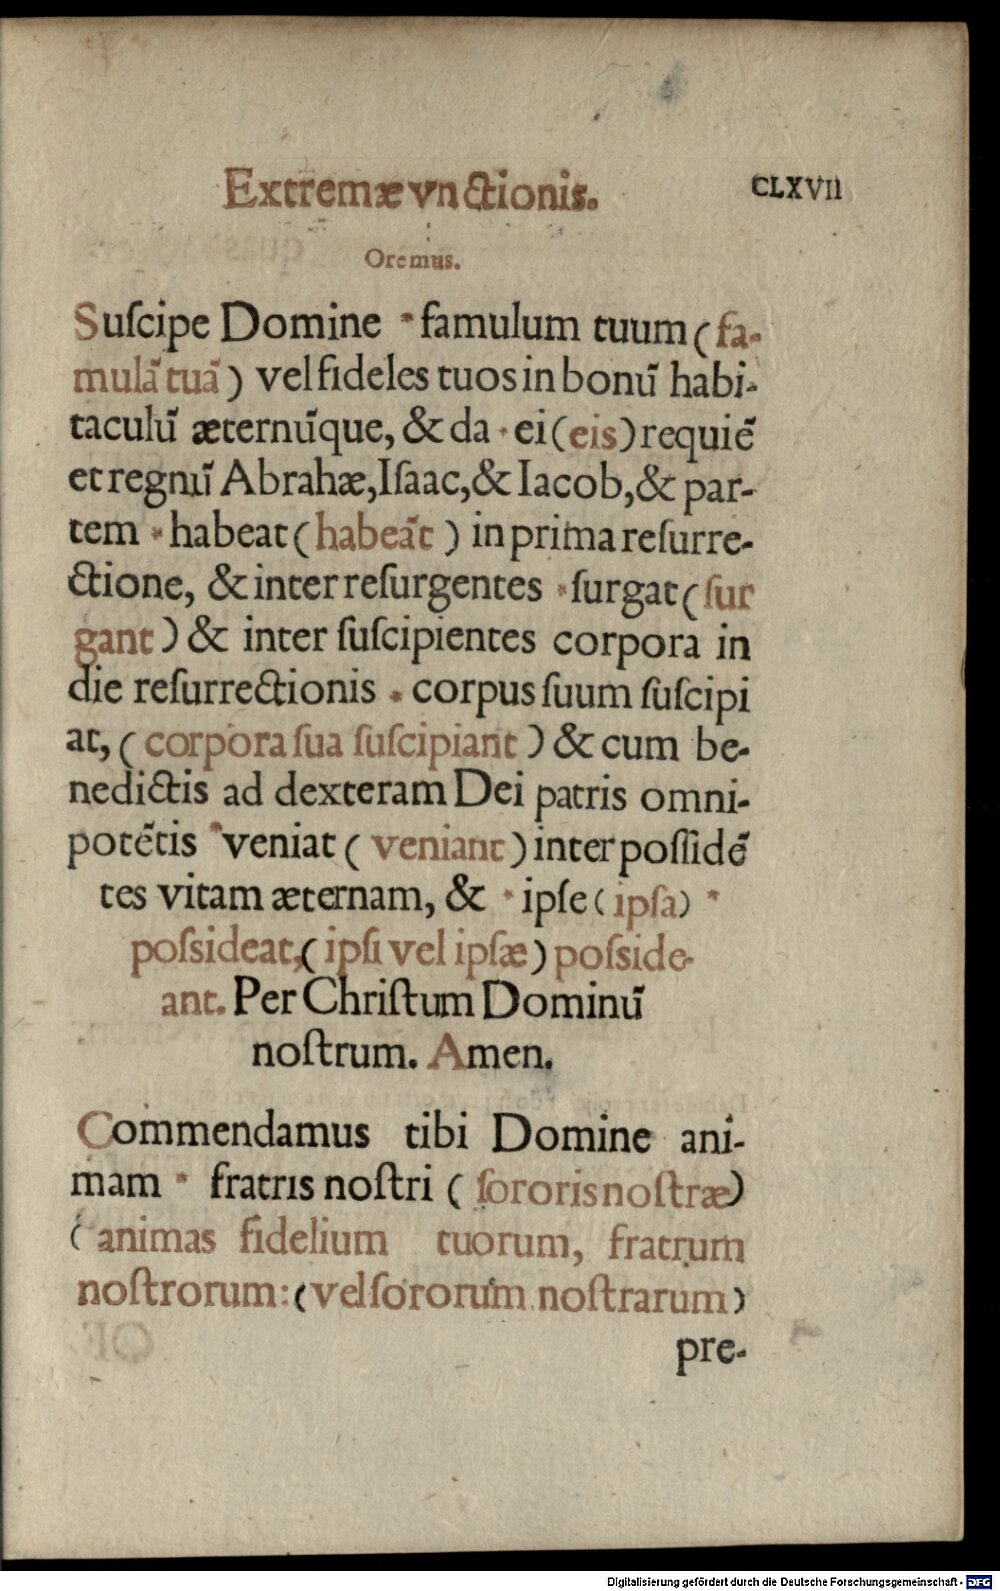 Extremæ vnctionis.
CLXVII
Oremus.
Suſcipe Domine * famulum tuum (fa-
mulā tuā) vel fideles tuos in bonū habi-
taculū æternūque, & da * ei (eis) requiē
et regnū Abrahæ, Iſaac, & Iacob, & par-
tem * habeat (habeāt) in prima reſurre-
ctione, & inter reſurgentes * ſurgat (ſur
gant) & inter ſuſcipientes corpora in
die reſurrectionis * corpus ſuum ſuſcipi
at, (corpora ſua ſuſcipiant) & cum be-
nedictis ad dexteram Dei patris omni-
potētis * veniat (veniant) inter poſſidē
tes vitam æternam, & * ipſe (ipſa) *
poſsideat, (ipſi vel ipſæ) poſside-
ant. Per Chriſtum Dominū
noſtrum. Amen.
Commendamus tibi Domine ani-
mam * fratris noſtri (ſororis noſtræ)
(animas fidelium tuorum, fratrum
noſtrorum: (vel ſororum noſtrarum)
pre-
Digitalisierung gefördert durch die Deutsche Forschungsgemeinschaft - DFG